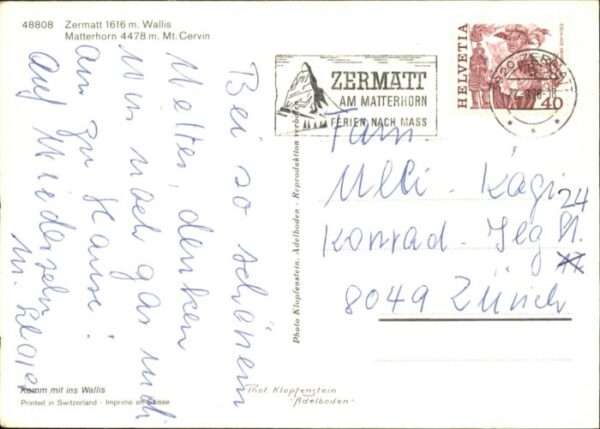 48808 Zermatt 1616 m. Wallis
Matterhorn 4478 m. Mt. Cervin
Bei so schönem
Wetter, denken
wir noch gar nicht
an zu Hause!
Auf Wiedersehn
Komm mit ins Wallis
Printed in Switzerland - Imprimé en Suisse
Photo Klopfenstein, Adelboden - Reproduktion verboten
Phot. Klopfenstein
"Adelboden"
ZERMATT
AM MATTERHORN
FERIEN NACH MASS
HELVETIA
40
ZERMATT
Fam.
Ulli - Kägi
Konrad - Ilg St. 24
8049 Zürich